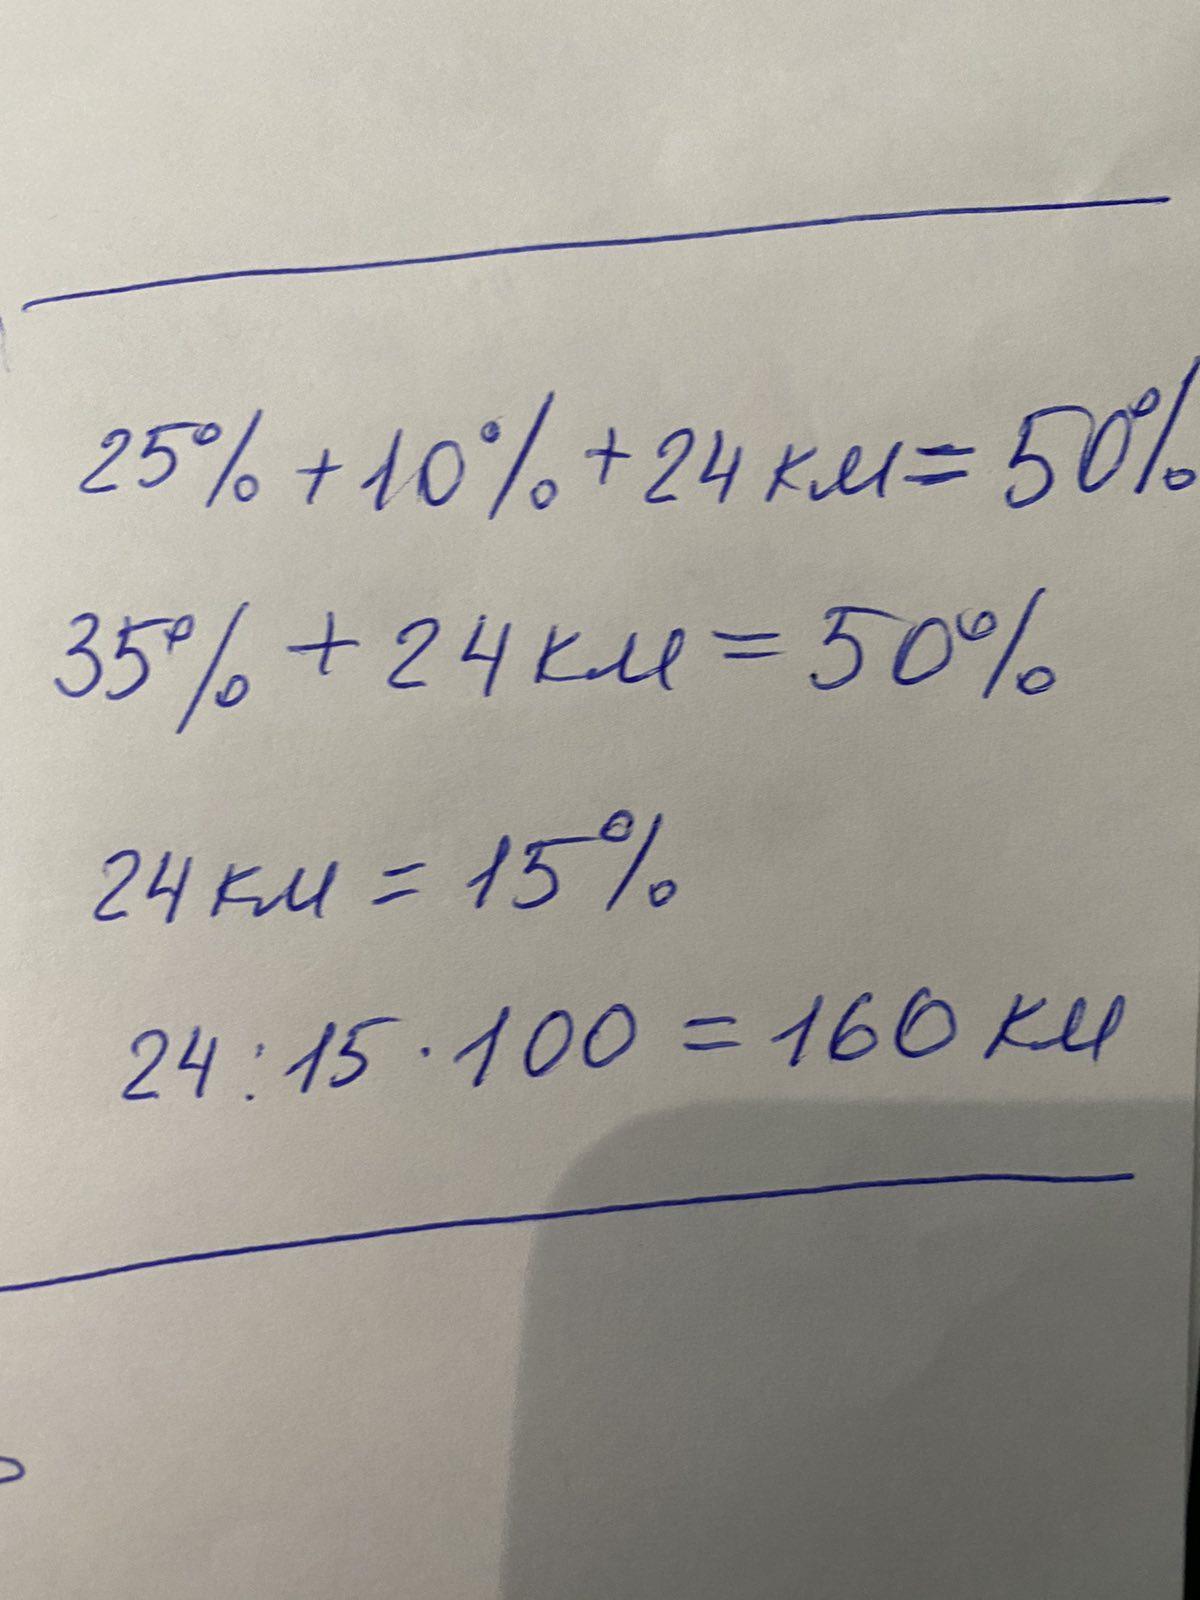 25% + 10% + 24 км = 50%
35% + 24 км = 50%
24 км = 15%
24 : 15 · 100 = 160 км